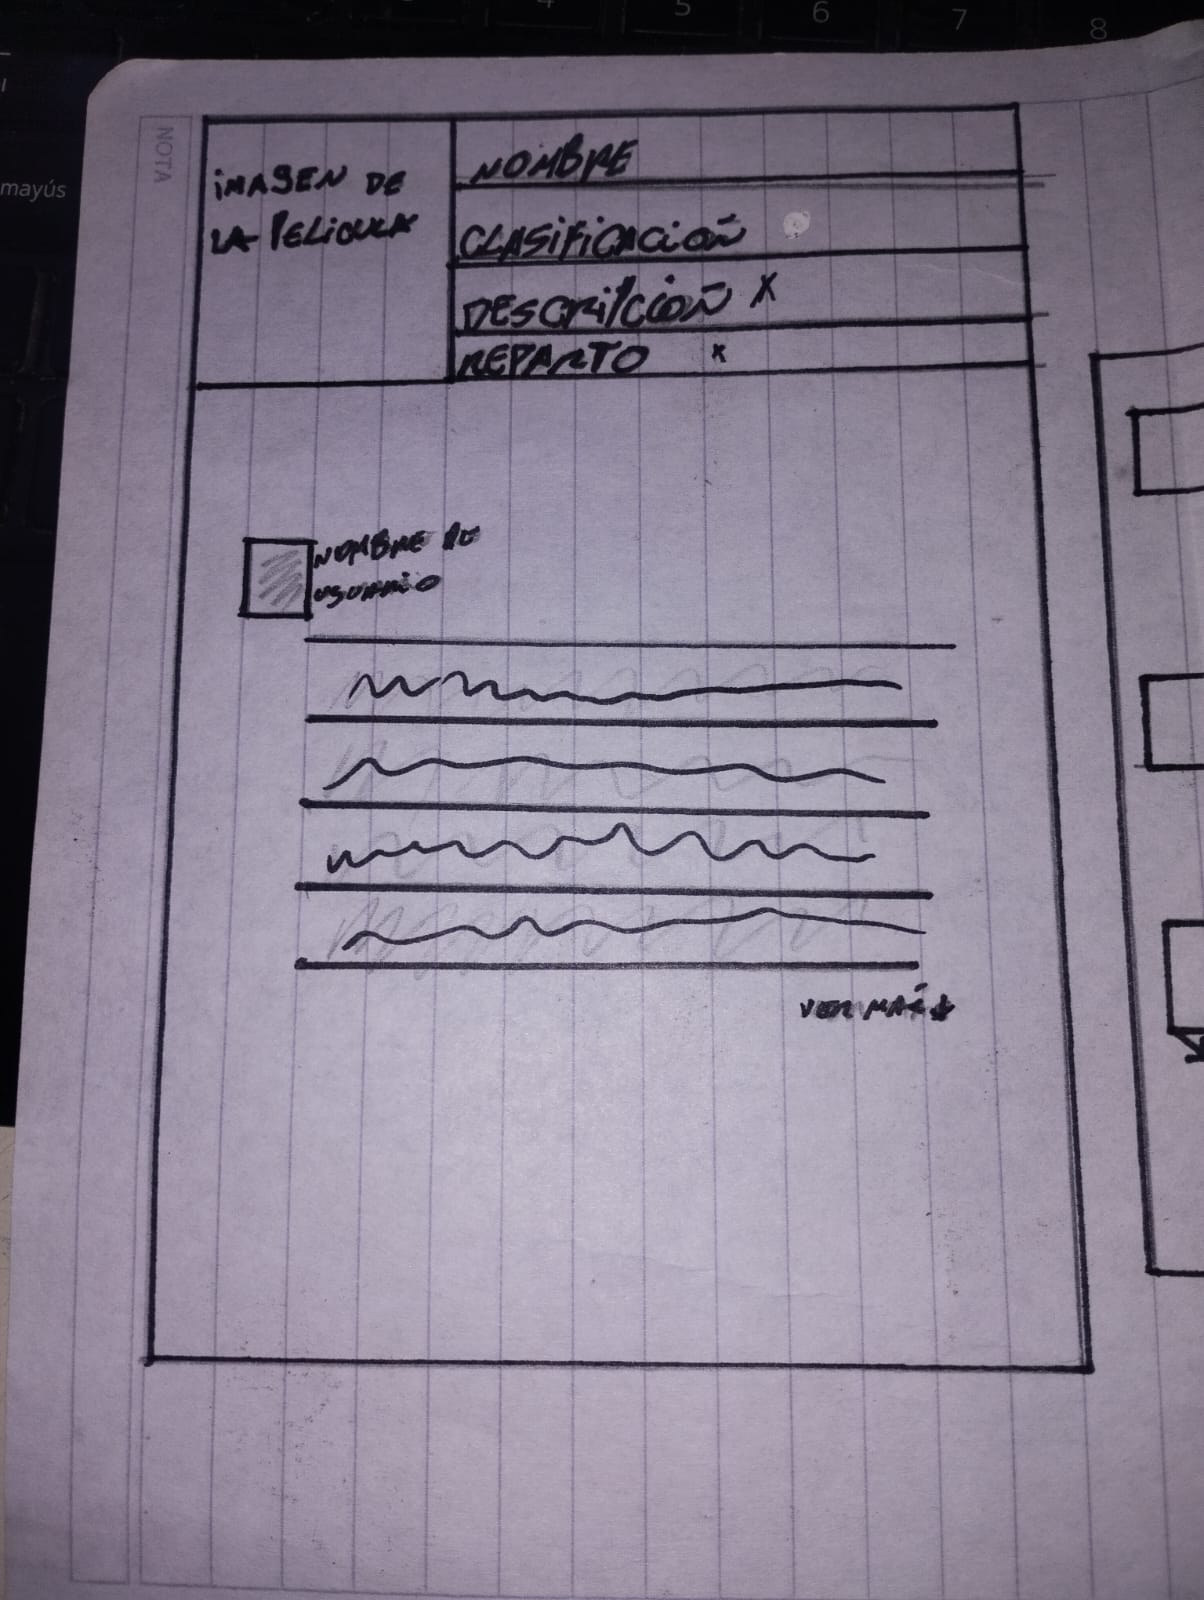 4 5 6 7 8
mayús
NOTA
IMAGEN DE
LA PELICULA
NOMBRE
CLASIFICACIOÑ
DESCRIPCIOÑ X
REPARTO x
NOMBRE DE
USUARIO
VER MAS